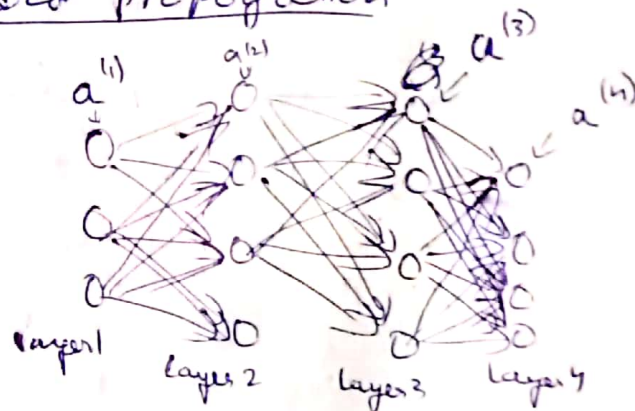 propogation
a(1)
a(2)
a(3)
a(4)
Layer 1
Layer 2
Layer 3
Layer 4